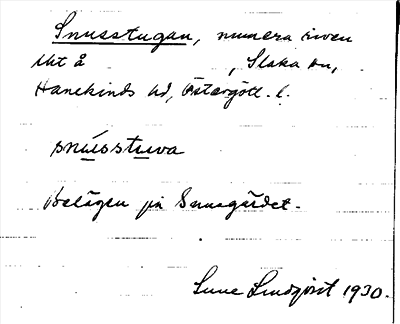 Snusstugan, numera riven
lht å , Slaka sn,
Hanekinds hd, Östergötl. l.
snusstuva
belägen på Snusgärdet.
Sune Lindqvist 1930.